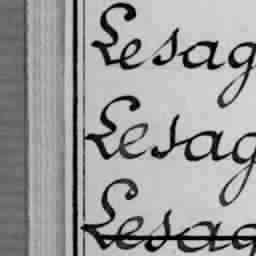 Lesag
Lesag
Lesag